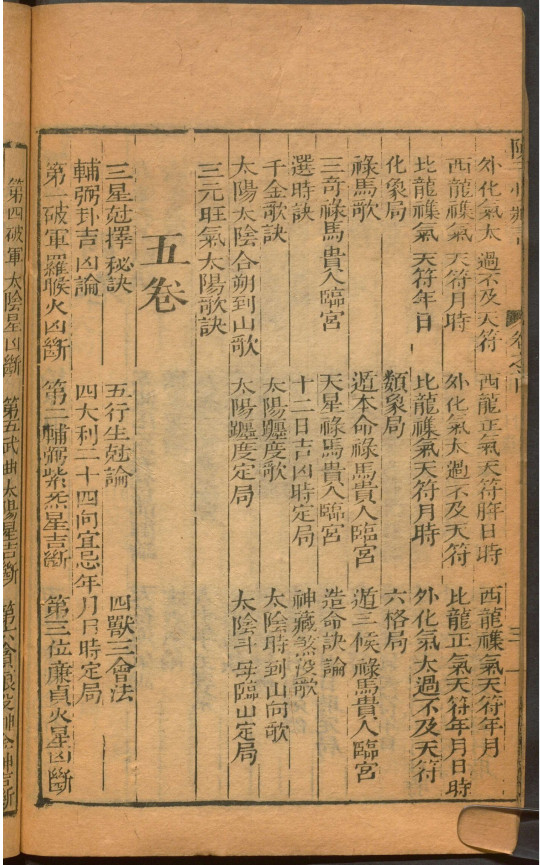 外化氣太過不及天符　西龍正氣天符年日時　西龍襍氣天符年月
西龍襍氣天符月時　外化氣太過不及天符　比龍正氣天符年月日時
比龍襍氣天符年日　比龍襍氣天符月時　外化氣太過不及天符
化象局　類象局　六格局
祿馬歌　遁本命祿馬貴人臨宮　遁三候祿馬貴人臨宮
三奇祿馬貴人臨宮　天星祿馬貴人臨宮　造命訣論
選時訣　十二日吉凶時定局　神藏煞没歌
千金歌訣　太陽躔度歌　太陰時到山向歌
太陽太陰合朔到山歌　太陽躔度定局　太陰斗母臨山定局
三元旺氣太陽歌訣
五卷
三星尅擇秘訣　五行生尅論　四獸三會法
輔弼卦吉凶論　四大利二十四向宜忌年月日時定局
第一破軍羅睺火凶斷　第二輔弼紫炁星吉斷　第三位廉貞火星凶斷
第四破軍太陰星凶斷　第五武曲太陽星吉斷　第六貪狼